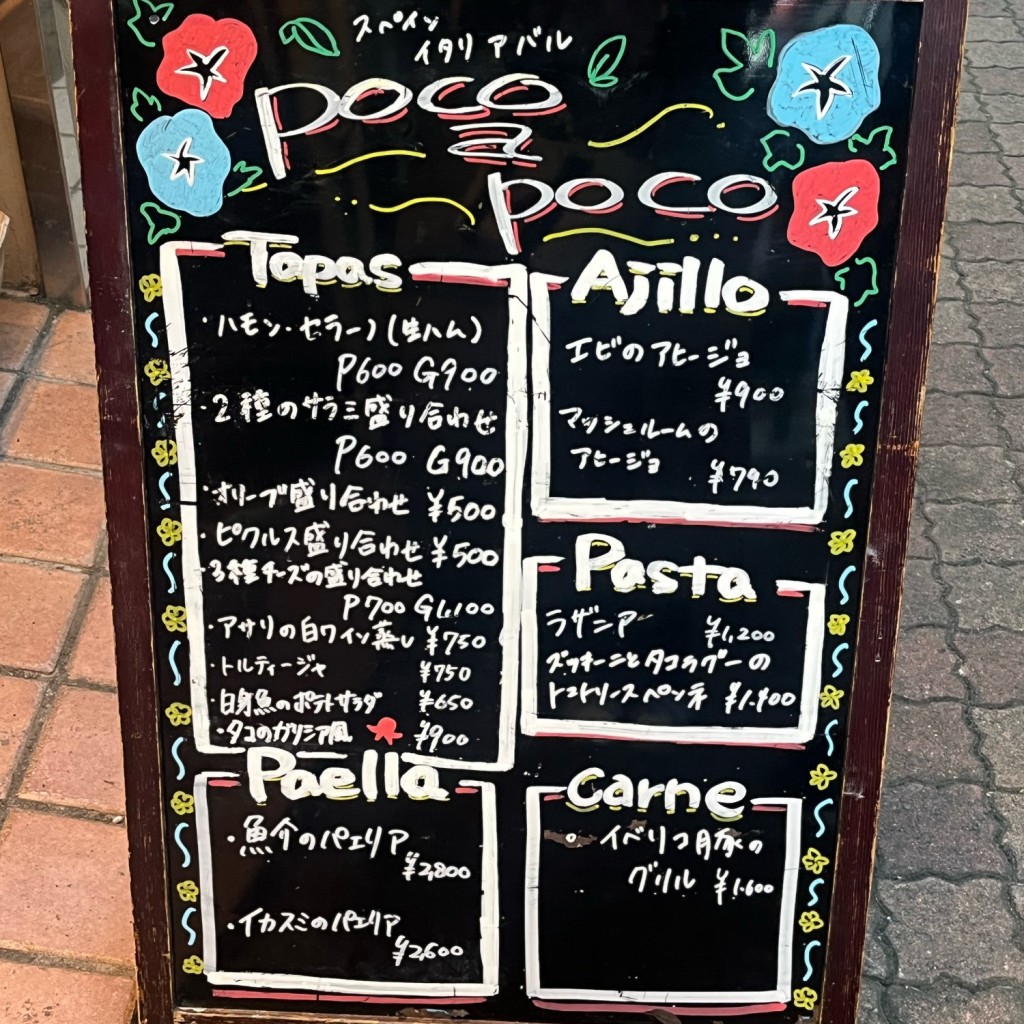 スペイン
イタリアバル
poco
a
poco
Tapas
・ハモン・セラーノ(生ハム)
P600 G900
・2種のサラミ盛り合わせ
P600 G900
・オリーブ盛り合わせ ¥500
・ピクルス盛り合わせ ¥500
・3種チーズの盛り合わせ
P700 G1,100
・アサリの白ワイン蒸し ¥750
・トルティージャ ¥750
・白身魚のポテトサラダ ¥650
・タコのガリシア風 ¥900
Ajillo
エビのアヒージョ
¥900
マッシュルームの
アヒージョ ¥790
Pasta
ラザニア ¥1,200
ズッキーニとタコラグーの
トマトソースペンネ ¥1.400
Paella
・魚介のパエリア
¥2,800
・イカスミのパエリア
¥2,600
Carne
・イベリコ豚の
グリル ¥1.600